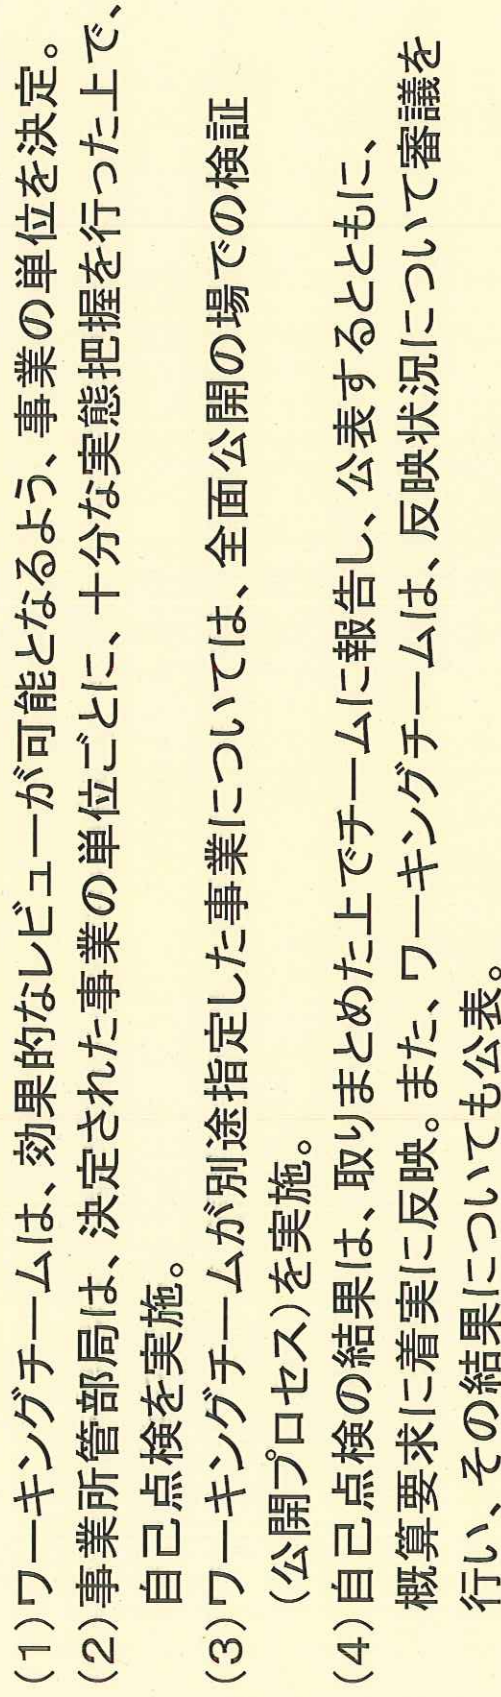 (1)ワーキングチームは、効果的なレビューが可能となるよう、事業の単位を決定。
(2)事業所管部局は、決定された事業の単位ごとに、十分な実態把握を行った上で、
自己点検を実施。
(3)ワーキングチームが別途指定した事業については、全面公開の場での検証
(公開プロセス)を実施。
(4)自己点検の結果は、取りまとめた上でチームに報告し、公表するとともに、
概算要求に着実に反映。また、ワーキングチームは、反映状況について審議を
行い、その結果についても公表。